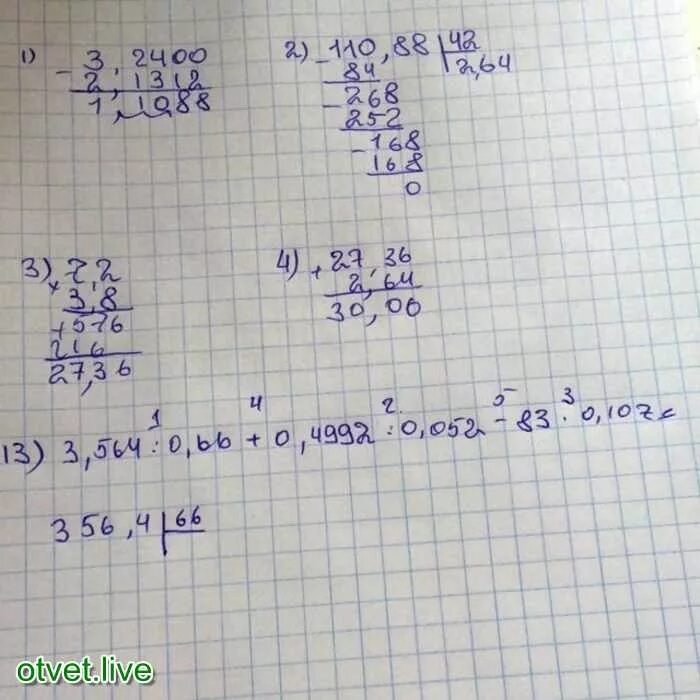 1) - 3,2400
2,1312
1,1088
2) - 110,88 | 42
84 2,64
- 268
252
- 168
168
0
3) x 7,2
3,8
+ 576
216
27,36
4) + 27,36
2,64
30,00
13) 3,564 : 0,66 + 0,4992 : 0,052 - 83 · 0,107 =
1 4 2 5 3
356,4 | 66
otvet.live